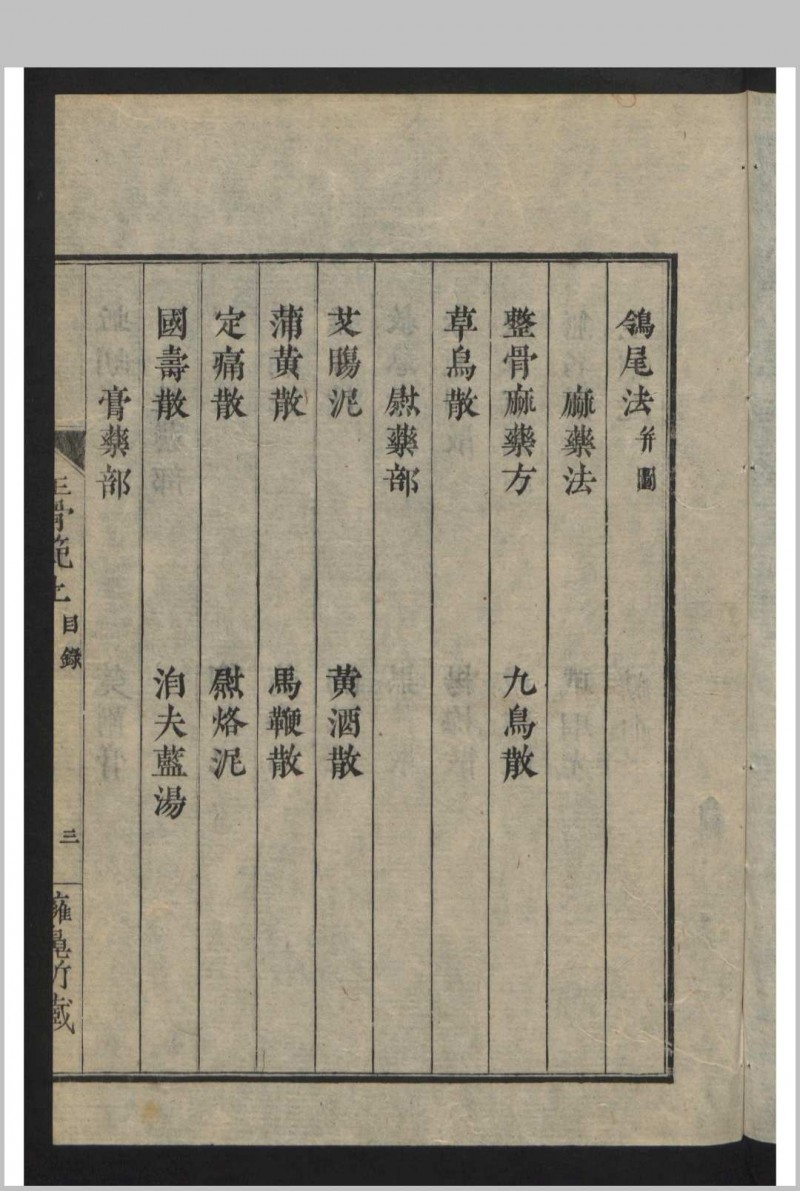 鴒尾法 并圖
麻藥法
整骨麻藥方 九烏散
草烏散
熨藥部
艾腸泥 黃酒散
蒲黃散 馬鞭散
定痛散 熨烙泥
國壽散 洎夫藍湯
膏藥部
正骨範上 目錄 三